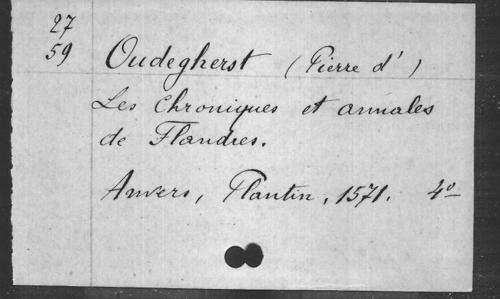 27
59
Oudegherst (Pierre d')
Les Chroniques et annales
de Flandres.
Anvers, Plantin, 1571. 4º